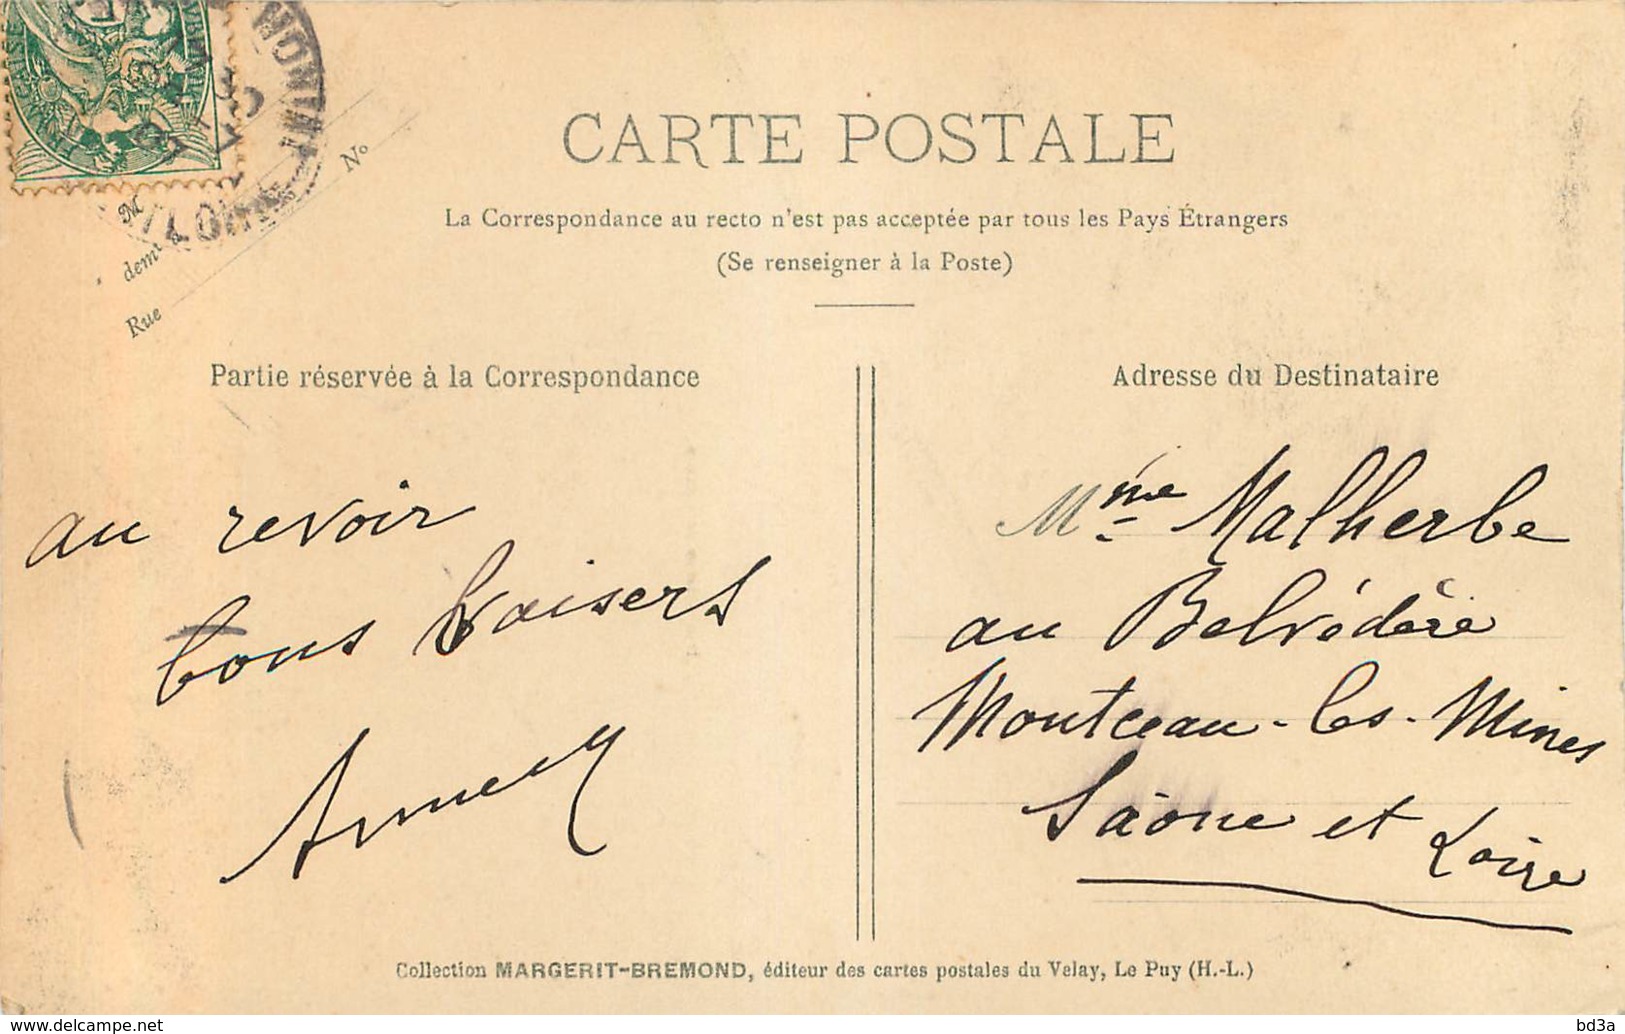 CARTE POSTALE
La Correspondance au recto n'est pas acceptée par tous les Pays Étrangers
(Se renseigner à la Poste)
M
demt à
Rue
No
Partie réservée à la Correspondance
au revoir
bons baisers
Adresse du Destinataire
Mme Malherbe
au Belvédère
Montceau-les-Mines
Saône et Loire
Collection MARGERIT-BREMOND, éditeur des cartes postales du Velay, Le Puy (H.-L.)
www.delcampe.net
bd3a